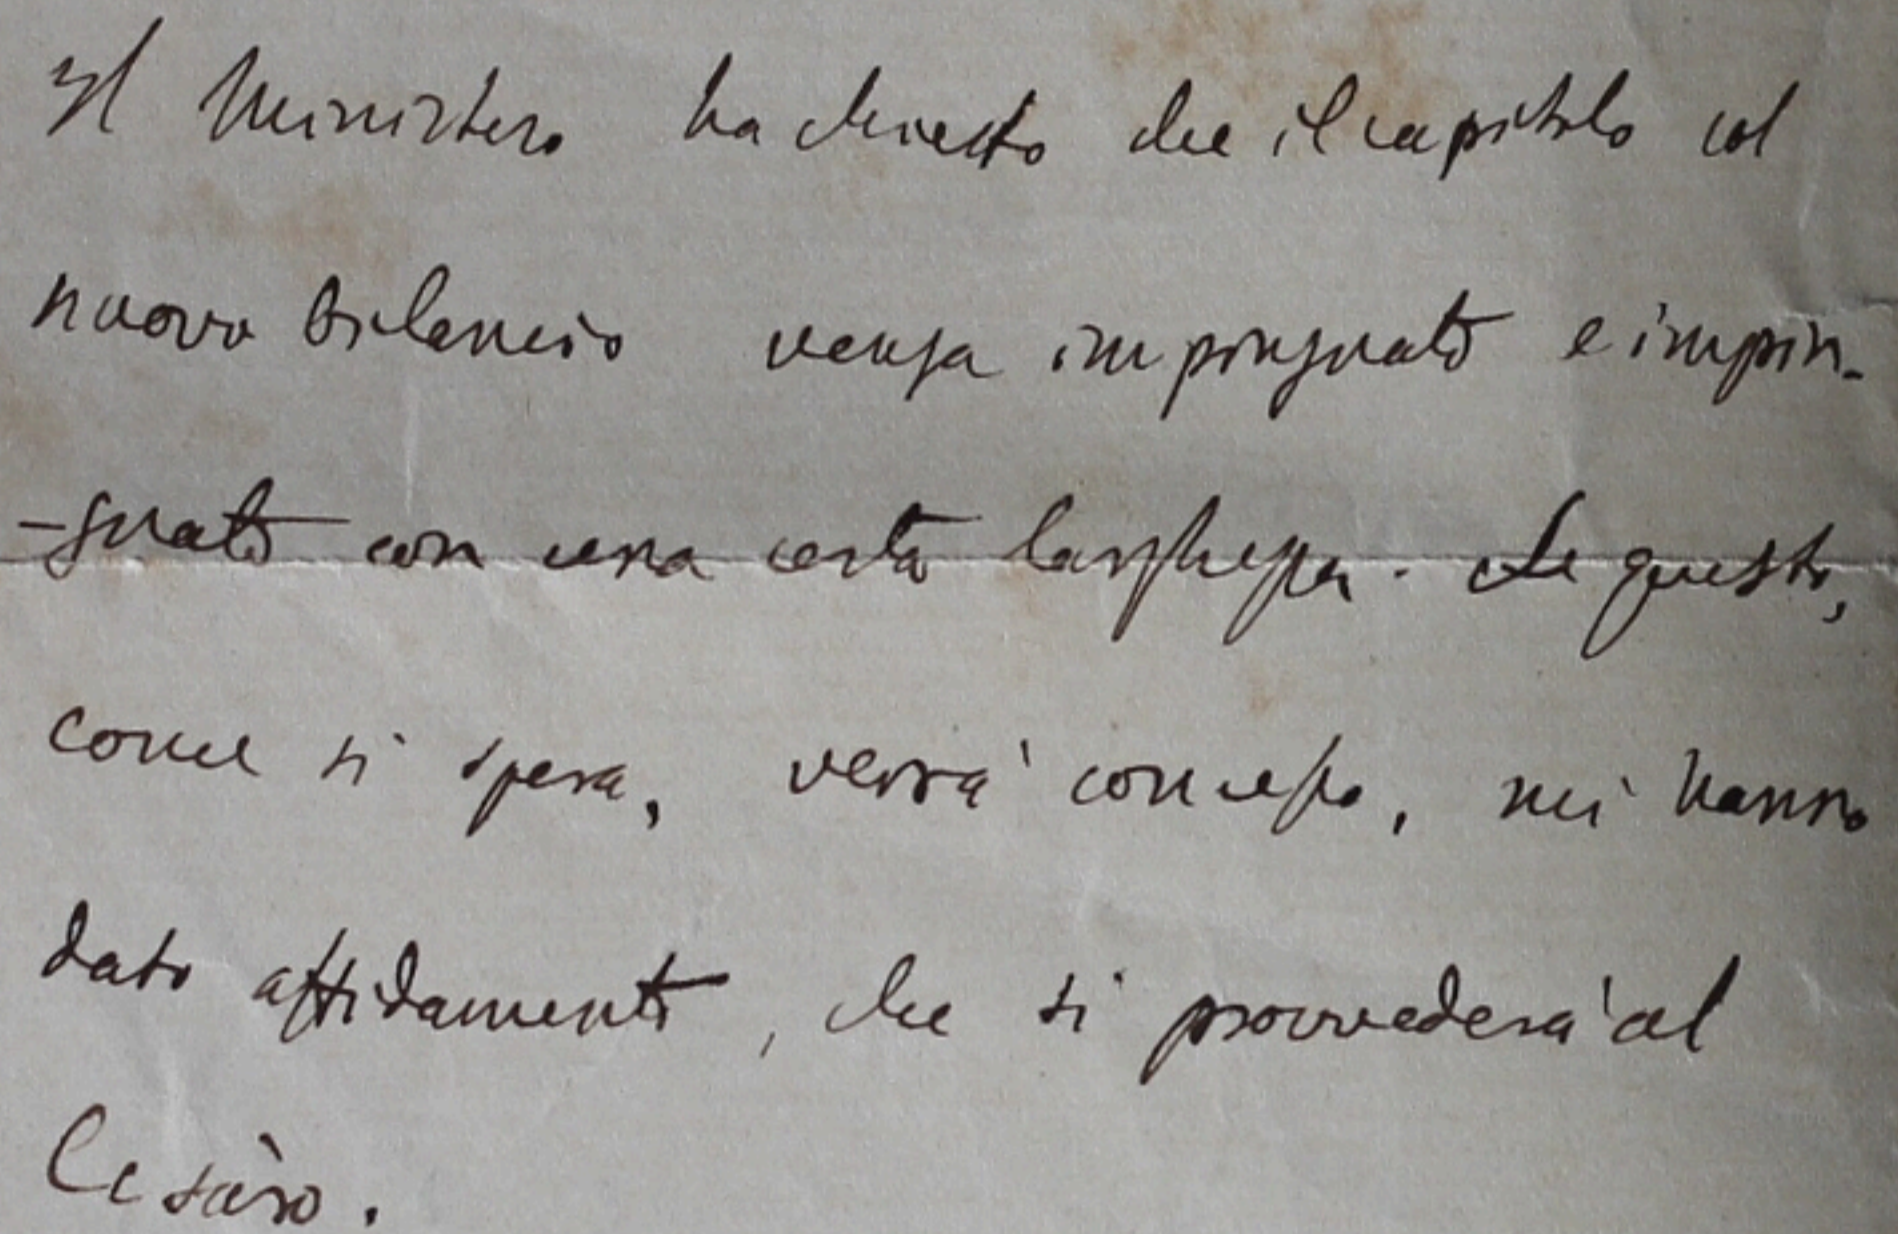 Il Ministero ha chiesto che il capitolo col
nuovo bilancio venga impinguato e impin-
-guato con una certa larghezza. Se questo,
come si spera, verrà concesso, mi hanno
dato affidamento, che si provvederà al
Cesàro.